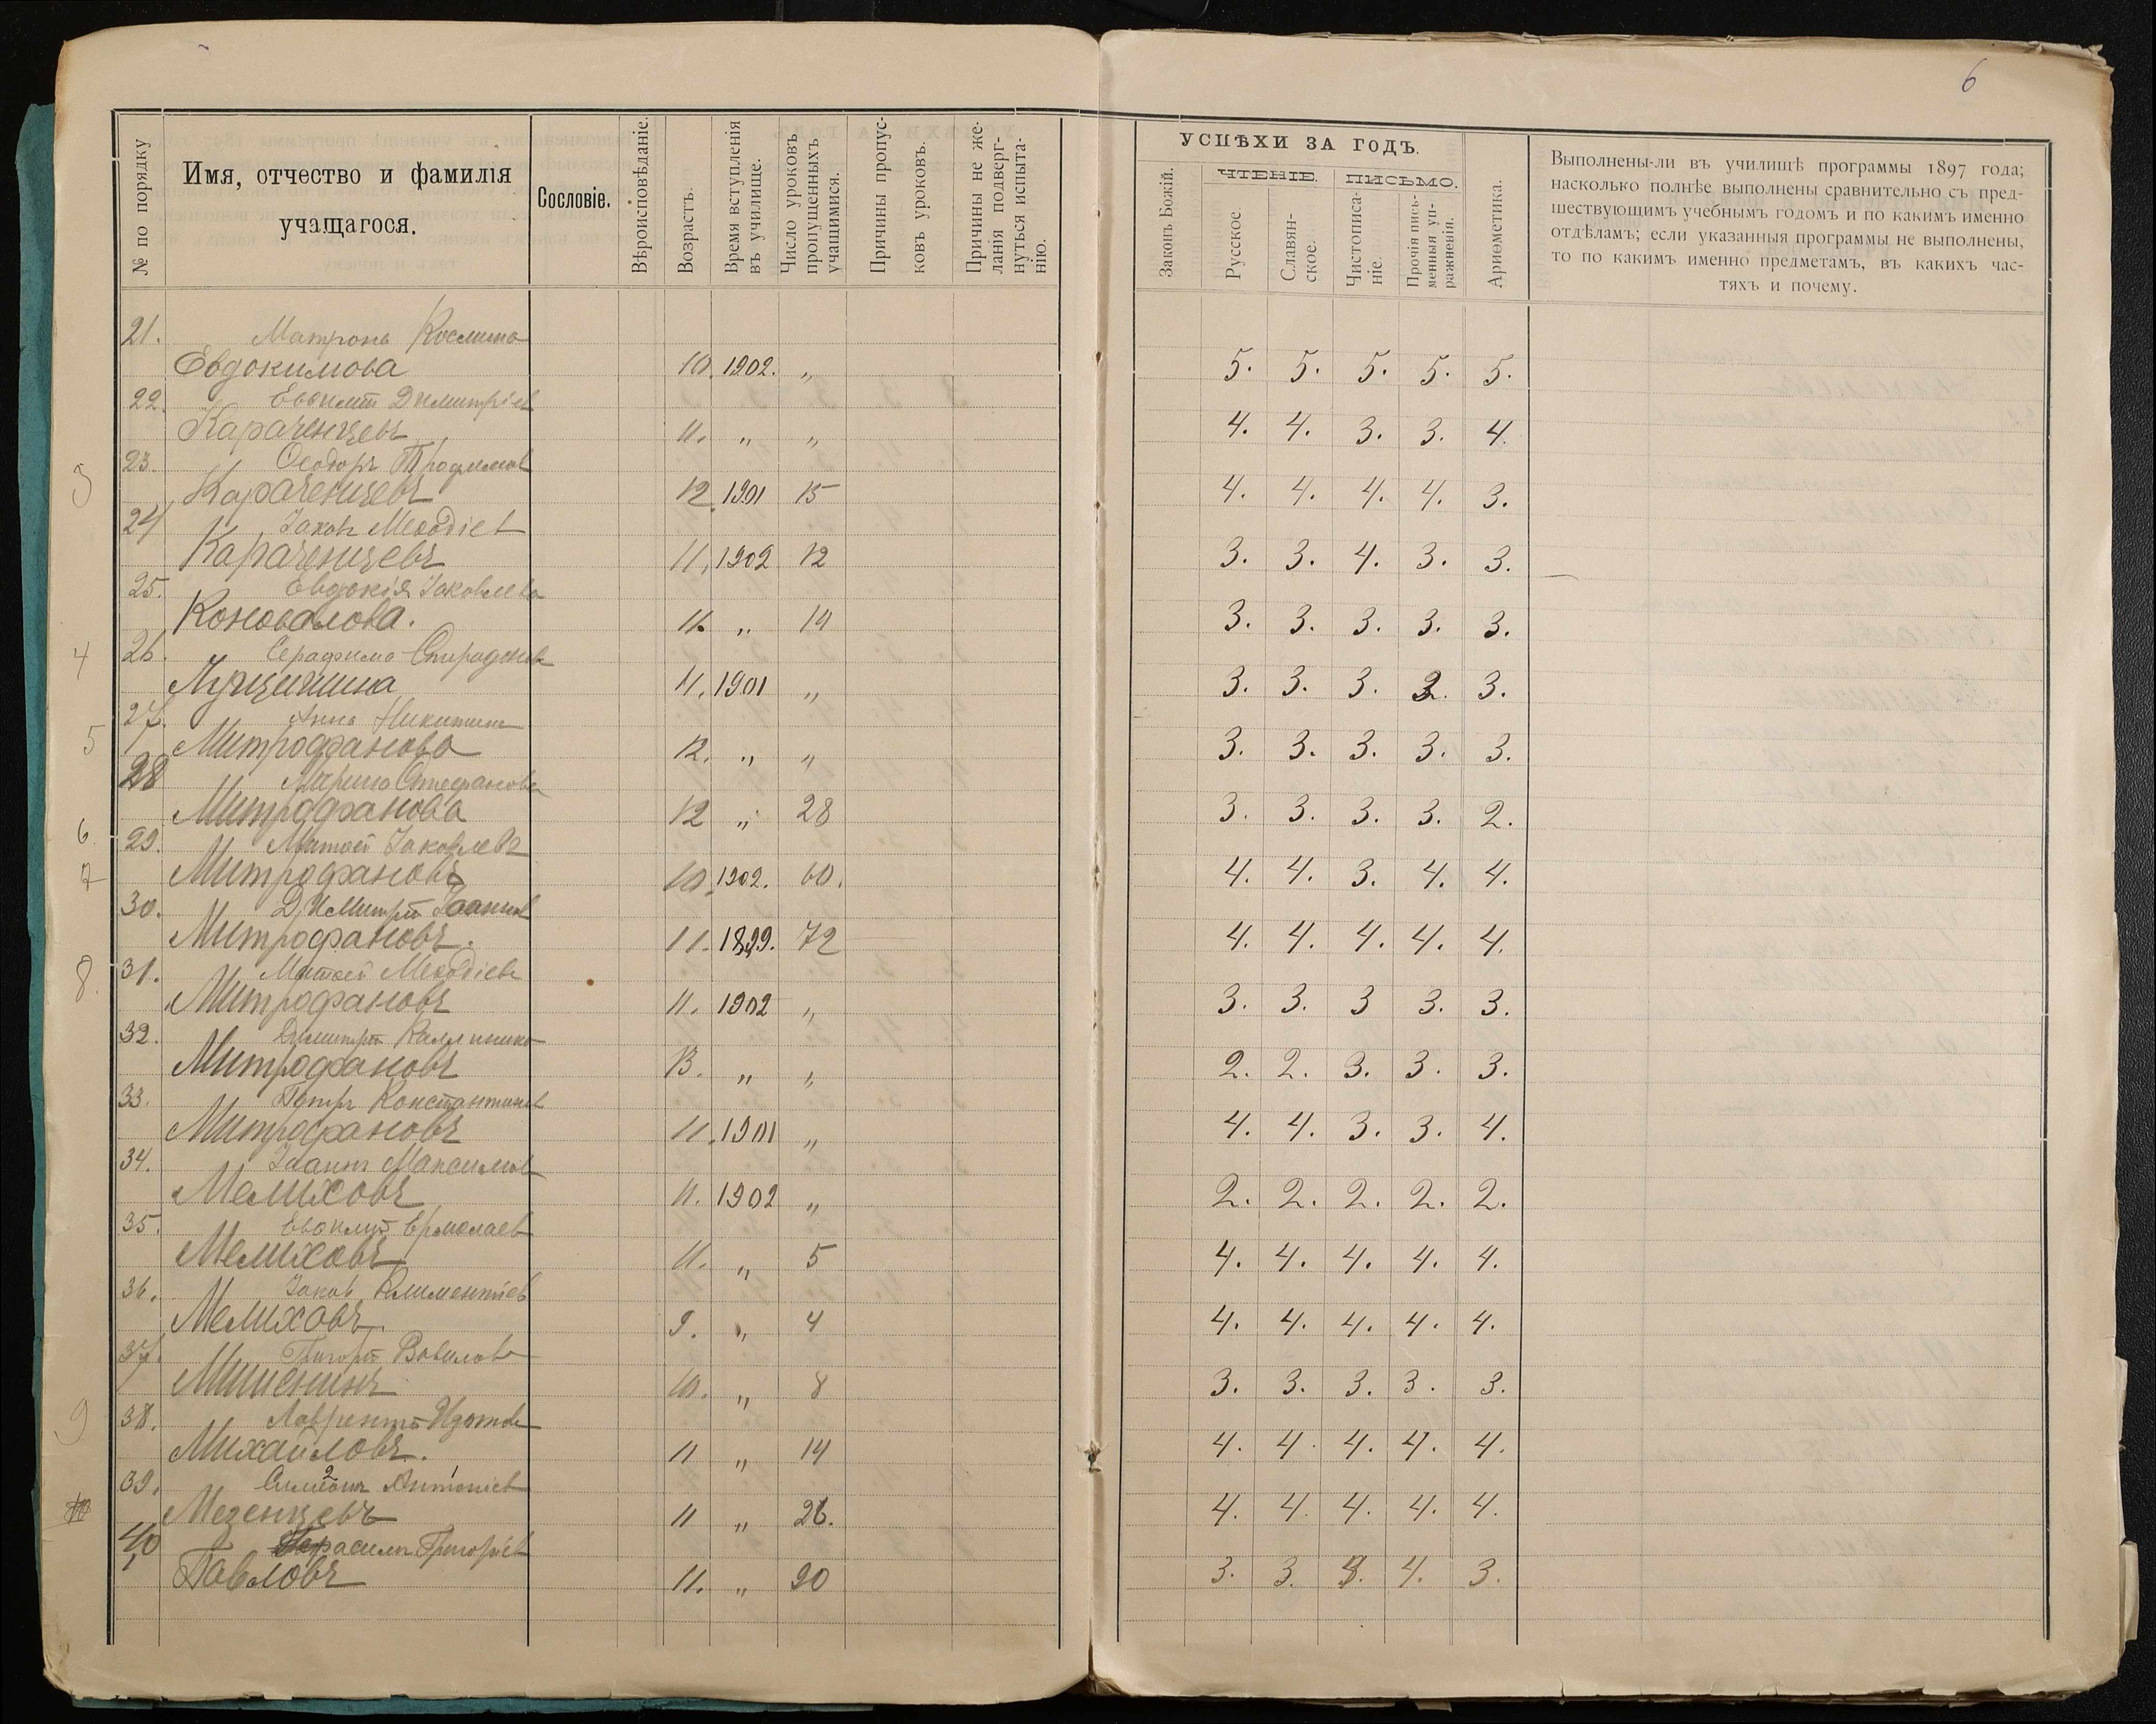 6
№ по порядку
Имя, отчество и фамилія
учащагося.
Сословіе.
Вѣроисповѣданіе.
Возрастъ.
Время вступленія
въ училище.
Число уроковъ
пропущенныхъ
учащимися.
Причины пропус-
ковъ уроковъ.
Причины не же-
ланія подверг-
нуться испыта-
нію.
УСПѢХИ ЗА ГОДЪ.
Законъ Божій.
ЧТЕНІЕ.
Русское.
Славян-
ское.
ПИСЬМО.
Чистописа-
ніе.
Прочія пись-
менныя уп-
ражненія.
Ариѳметика.
Выполнены-ли въ училищѣ программы 1897 года;
насколько полнѣе выполнены сравнительно съ пред-
шествующимъ учебнымъ годомъ и по какимъ именно
отдѣламъ; если указанныя программы не выполнены,
то по какимъ именно предметамъ, въ какихъ час-
тяхъ и почему.
21. Матрона Космина
Евдокимова 10. 1902. „ 5. 5. 5. 5. 5.
22. Евѳимій Димитріев
Караченцевъ 11. „ „ 4. 4. 3. 3. 4.
23. Ѳеодоръ Трофимов
3 Караченцевъ 12. 1901 15 4. 4. 4. 4. 3.
24 Іаковъ Меѳодіев
Караченцевъ 11, 1902 12 3. 3. 4. 3. 3.
25. Евдокія Іаковлева
Коновалова. 11. „ 14 3. 3. 3. 3. 3.
4 26. Серафима Спиридонов
11. 1901 „ 3. 3. 3. 3. 3.
27. Анна Никитин
5 Митрофанова 12. „ „ 3. 3. 3. 3. 3.
28 Марина Стефанова
Митрофанова 12 „ 28 3. 3. 3. 3. 2.
6. 29. Матѳей Іаковлевъ
7 Митрофановъ 10. 1902. 60. 4. 4. 3. 4. 4.
30. Димитрій Іоаннов
Митрофановъ. 11. 1899. 72 4. 4. 4. 4. 4.
8. 31. Матѳей Меѳодіевъ
Митрофановъ 11. 1902 „ 3. 3. 3 3. 3.
32. Димитрій
Митрофановъ 13. „ „ 2. 2. 3. 3. 3.
33. Петръ Константинов
Митрофановъ 11. 1901 „ 4. 4. 3. 3. 4.
34. Іоаннъ Максимов
Мелиховъ 11. 1902 „ 2. 2. 2. 2. 2.
35. Евѳимій Ермолаев
Мелиховъ 11. „ 5 4. 4. 4. 4. 4.
36. Іаковъ Климентіев
Мелиховъ. 9. „ 4 4. 4. 4. 4. 4.
37. Григорій Вавилов
Мишенинъ 10. „ 8 3. 3. 3. 3. 3.
9 38. Лаврентій Изотов
Михайловъ. 11 „ 14 4. 4. 4. 4. 4.
39. Симеонъ Антоніев
Мезенцевъ 11 „ 26. 4. 4. 4. 4. 4.
40 Герасимъ Григоріев
Павловъ 11. „ 20 3. 3. 4. 3.